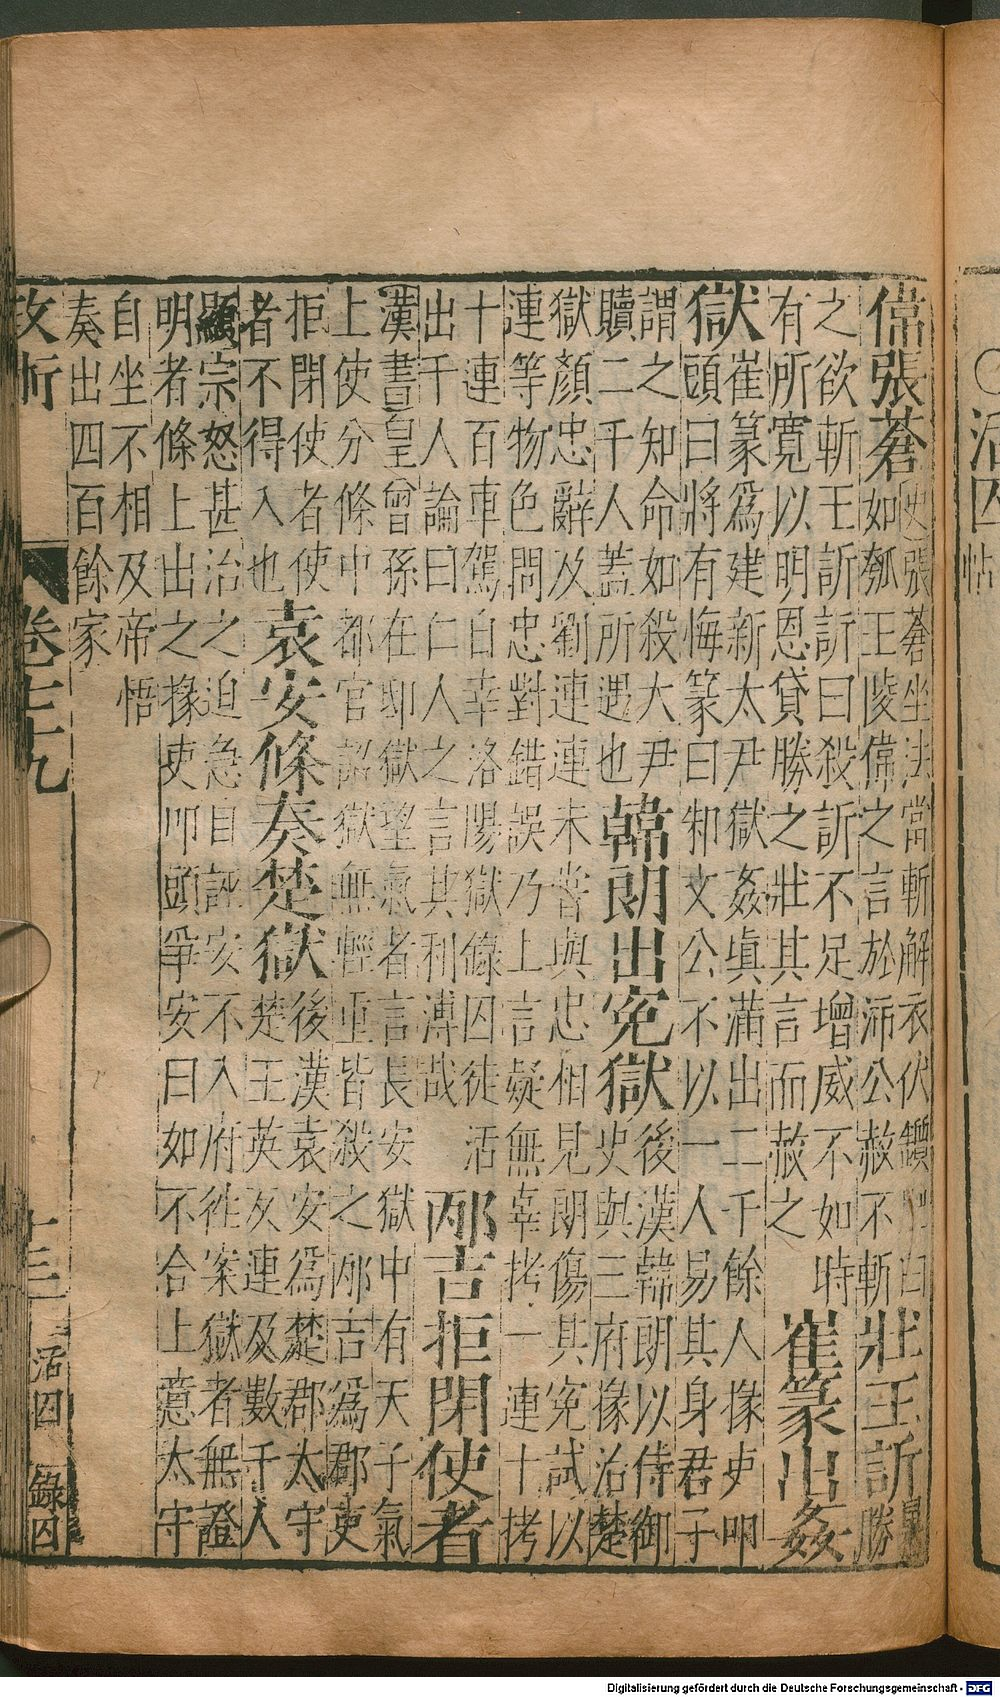 ○活囚帖
偉張蒼 史張蒼坐法當斬解衣伏鑕 白
如瓠王陵偉之言於沛公赦不斬 壯王訢 暴
勝
之欲斬王訢訢曰殺訢不足增威不如時
有所寬以明恩貸勝之壯其言而赦之 崔篆出姦
獄 崔篆爲建新太尹獄姦填滿出二千餘人掾吏叩
頭曰將有悔篆曰邾文公不以一人易其身君子
謂之知命如殺大尹
贖二千人蓋所遇也 韓朗出冤獄 後漢韓朗以侍御
史與三府掾治楚
獄顏忠辭及劉連連未嘗與忠相見朗傷其冤試以
連等物色問忠對錯誤乃上言疑無辜拷一連十拷
十連百車駕自幸洛陽獄錄囚徒活
出千人論曰仁人之言其利溥哉 邴吉拒閉使者
漢書皇曾孫在邸獄望氣者言長安獄中有天子氣
上使分條中都官詔獄無輕重皆殺之邴吉爲郡吏
拒閉使者使
者不得入也 袁安條奏楚獄 後漢袁安爲楚郡太守
楚王英反連及數千人
顯宗怒甚治之迫急自誣安不入府徃案獄者無證
明者條上出之掾吏叩頭爭安曰如不合上意太守
自坐不相及帝悟
奏出四百餘家
卷七十九 十三 活囚 錄囚
Digitalisierung gefördert durch die Deutsche Forschungsgemeinschaft - DFG